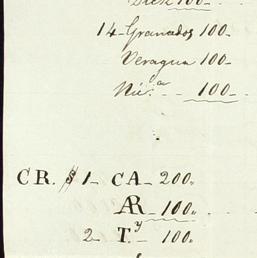 Diez 100-
14-Granados 100-
Veragua 100-
Niu.ª - 100-
CR. $ 1- CA- 200-
AR- 100-
2- T.y- 100-